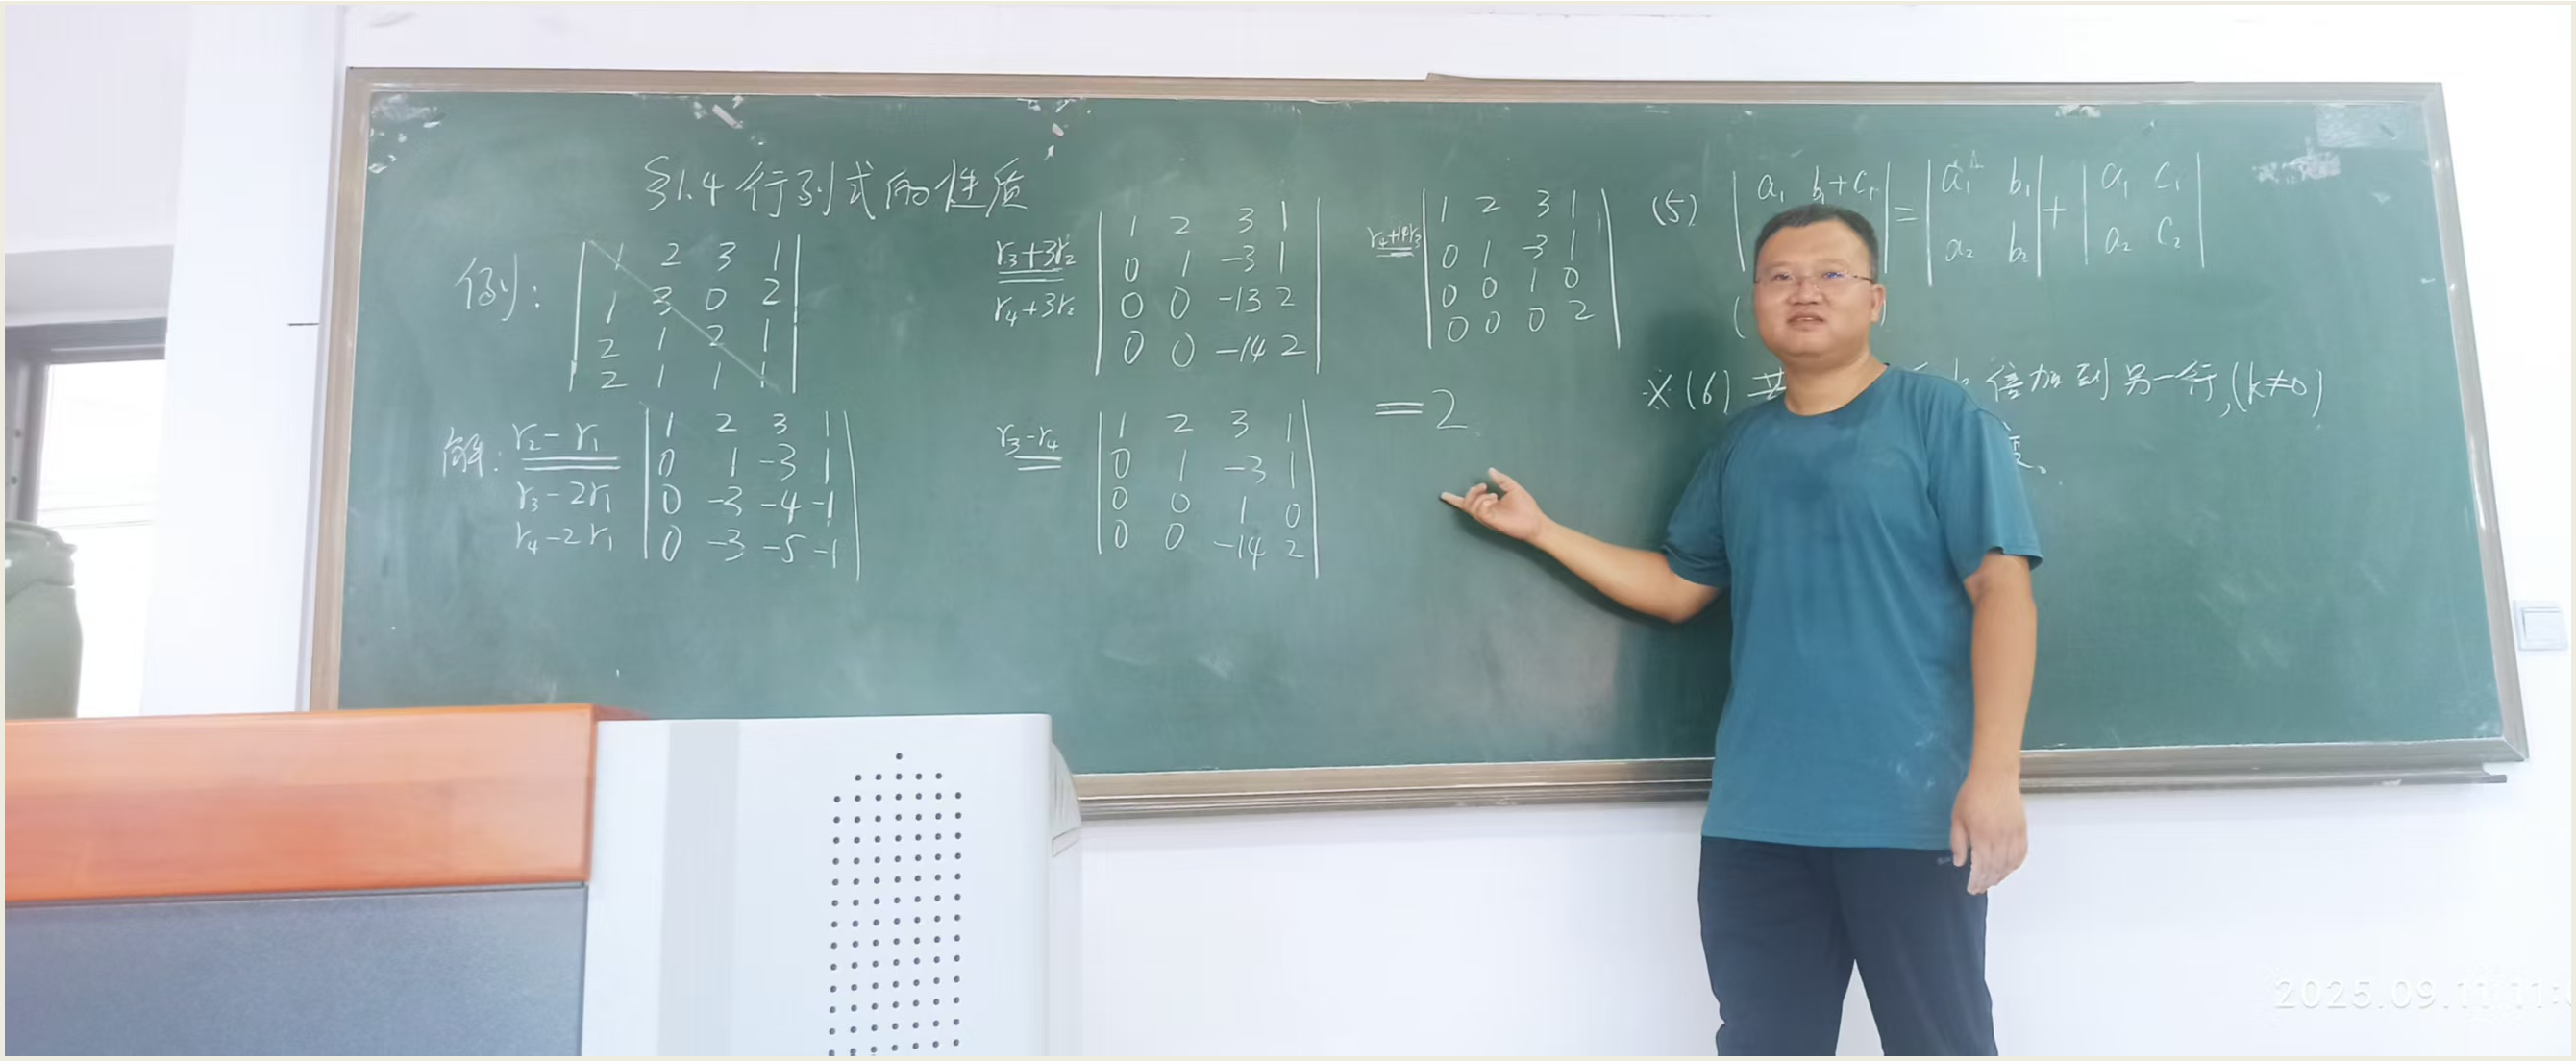 §1.4 行列式的性质
例:
| 1 2 3 1 |
| 1 3 0 2 |
| 2 1 2 1 |
| 2 1 1 1 |
解: r₂-r₁
r₃-2r₁
r₄-2r₁
| 1 2 3 1 |
| 0 1 -3 1 |
| 0 -3 -4 -1 |
| 0 -3 -5 -1 |
r₃+3r₂
r₄+3r₂
| 1 2 3 1 |
| 0 1 -3 1 |
| 0 0 -13 2 |
| 0 0 -14 2 |
r₃-r₄
| 1 2 3 1 |
| 0 1 -3 1 |
| 0 0 1 0 |
| 0 0 -14 2 |
r₄+14r₃
| 1 2 3 1 |
| 0 1 -3 1 |
| 0 0 1 0 |
| 0 0 0 2 |
=2
(5) | a₁ b₁+c₁ | = | a₁ b₁ | + | a₁ c₁ |
| a₂ b₂ | | a₂ c₂ |
※(6) 倍加到另一行,(k≠0)
2025.09.11 11: